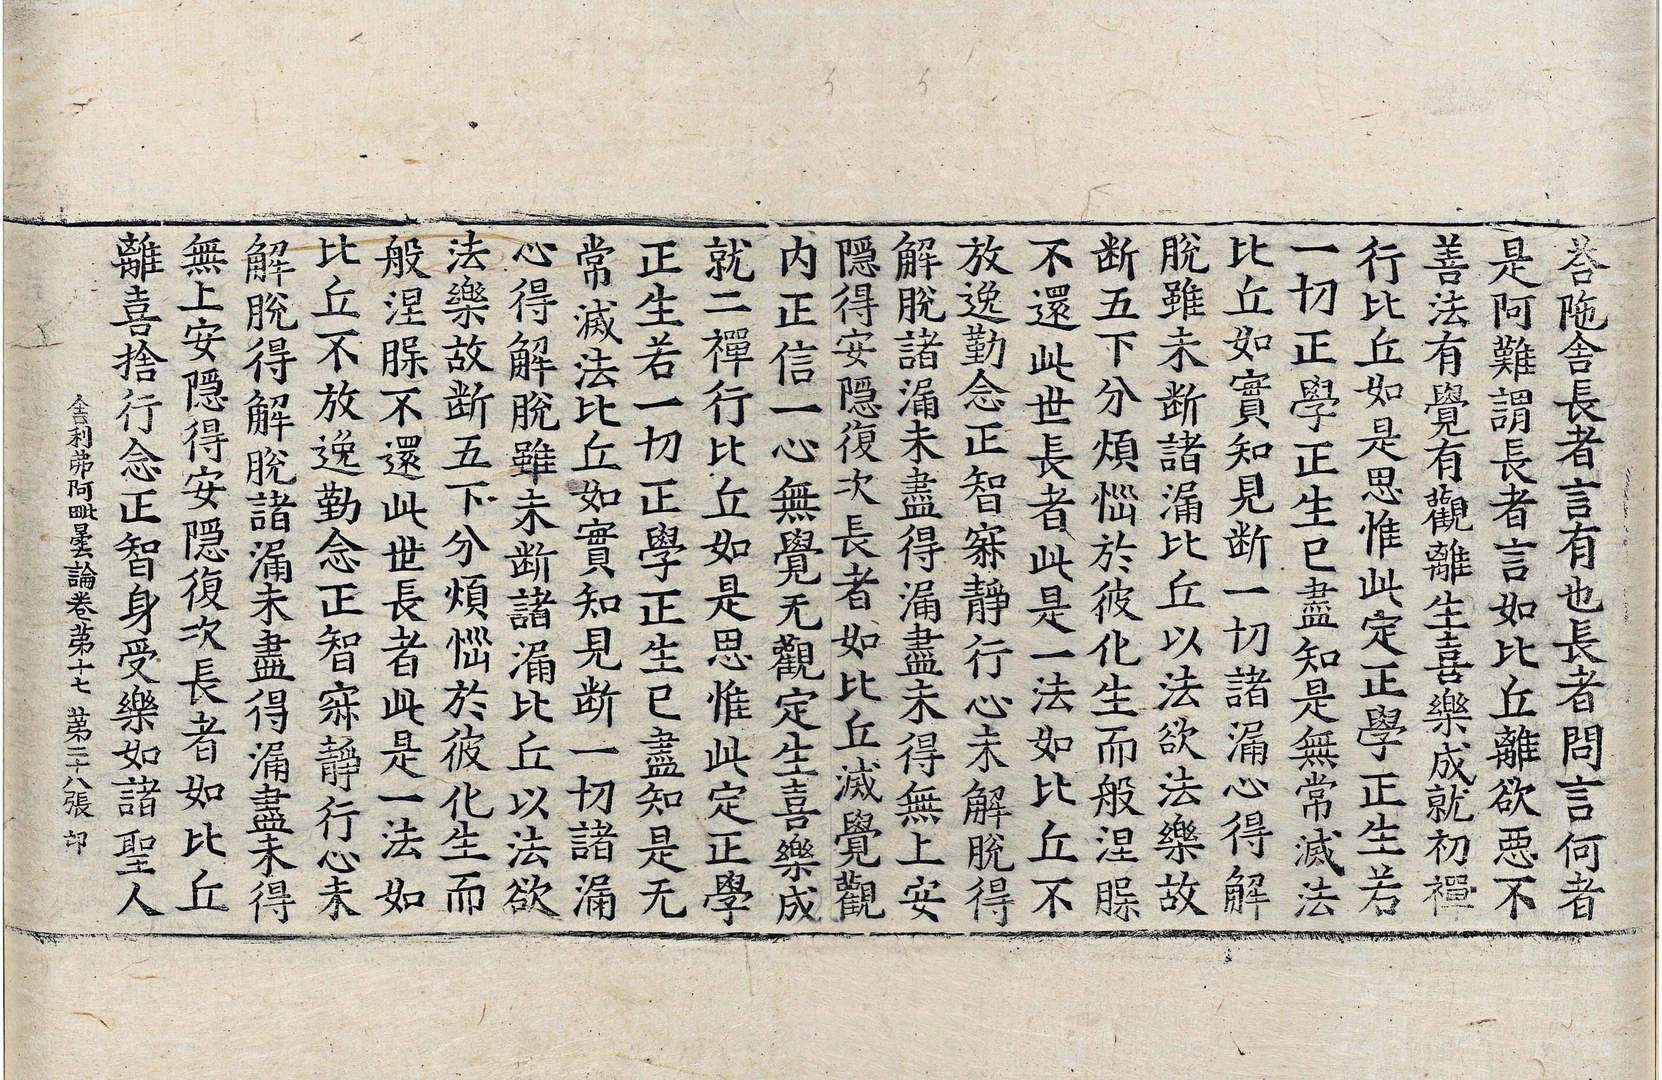 荅陁舍長者言有也長者問言何者
是阿難謂長者言如比丘離欲惡不
善法有覺有觀離生喜樂成就初禪
行比丘如是思惟此定正學正生若
一切正學正生已盡知是無常滅法
比丘如實知見断一切諸漏心得解
脫雖未断諸漏比丘以法欲法樂故
断五下分煩惱於彼化生而般涅槃
不還此世長者此是一法如比丘不
放逸勤念正智寂靜行心未解脫得
解脫諸漏未盡得漏盡未得無上安
隱得安隱復次長者如比丘滅覺觀
內正信一心無覺无觀定生喜樂成
就二禪行比丘如是思惟此定正學
正生若一切正學正生已盡知是无
常滅法比丘如實知見断一切諸漏
心得解脫雖未断諸漏比丘以法欲
法樂故断五下分煩惱於彼化生而
般涅槃不還此世長者此是一法如
比丘不放逸勤念正智寂靜行心未
解脫得解脫諸漏未盡得漏盡未得
無上安隱得安隱復次長者如比丘
離喜捨行念正智身受樂如諸聖人
舍利弗阿毗曇論卷第十七 第三十八張 印